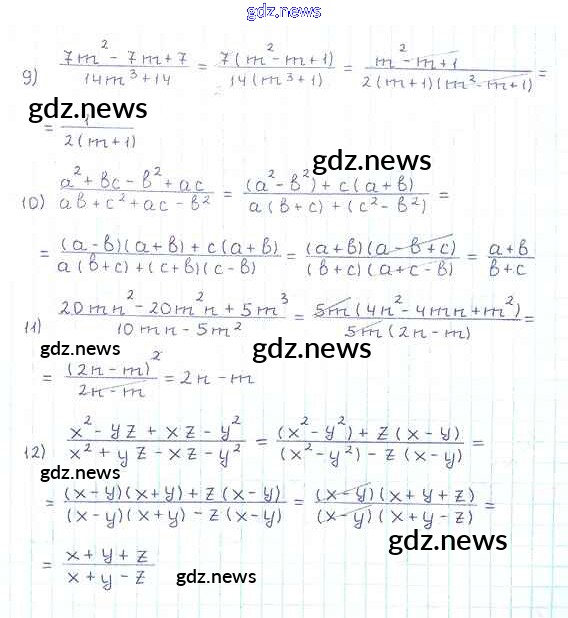 gdz.news
9) (7m² - 7m + 7)/(14m³ + 14) = 7(m² - m + 1)/14(m³ + 1) = (m² - m + 1)/2(m + 1)(m² - m + 1) =
gdz.news
= 1/2(m + 1)
gdz.news
10) (a² + bc - b² + ac)/(ab + c² + ac - b²) = ((a² - b²) + c(a + b))/(a(b + c) + (c² - b²)) =
= ((a - b)(a + b) + c(a + b))/(a(b + c) + (c + b)(c - b)) = (a + b)(a - b + c)/(b + c)(a + c - b) = (a + b)/(b + c)
11) (20mn² - 20m²n + 5m³)/(10mn - 5m²) = 5m(4n² - 4mn + m²)/5m(2n - m) =
gdz.news gdz.news
= (2n - m)²/(2n - m) = 2n - m
12) (x² - yz + xz - y²)/(x² + yz - xz - y²) = ((x² - y²) + z(x - y))/((x² - y²) - z(x - y)) =
gdz.news
= ((x - y)(x + y) + z(x - y))/((x - y)(x + y) - z(x - y)) = (x - y)(x + y + z)/(x - y)(x + y - z) =
gdz.news
= (x + y + z)/(x + y - z)
gdz.news